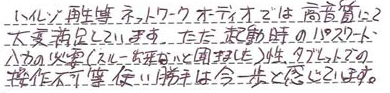 ハイレゾ再生等 ネットワークオーディオでは 高音質にて
大変満足しています。ただ 起動時のパスワード
入力の必要(スルー出来ないと聞きました)性、タブレットでの
操作不可等 使い勝手は今一歩と感じています。